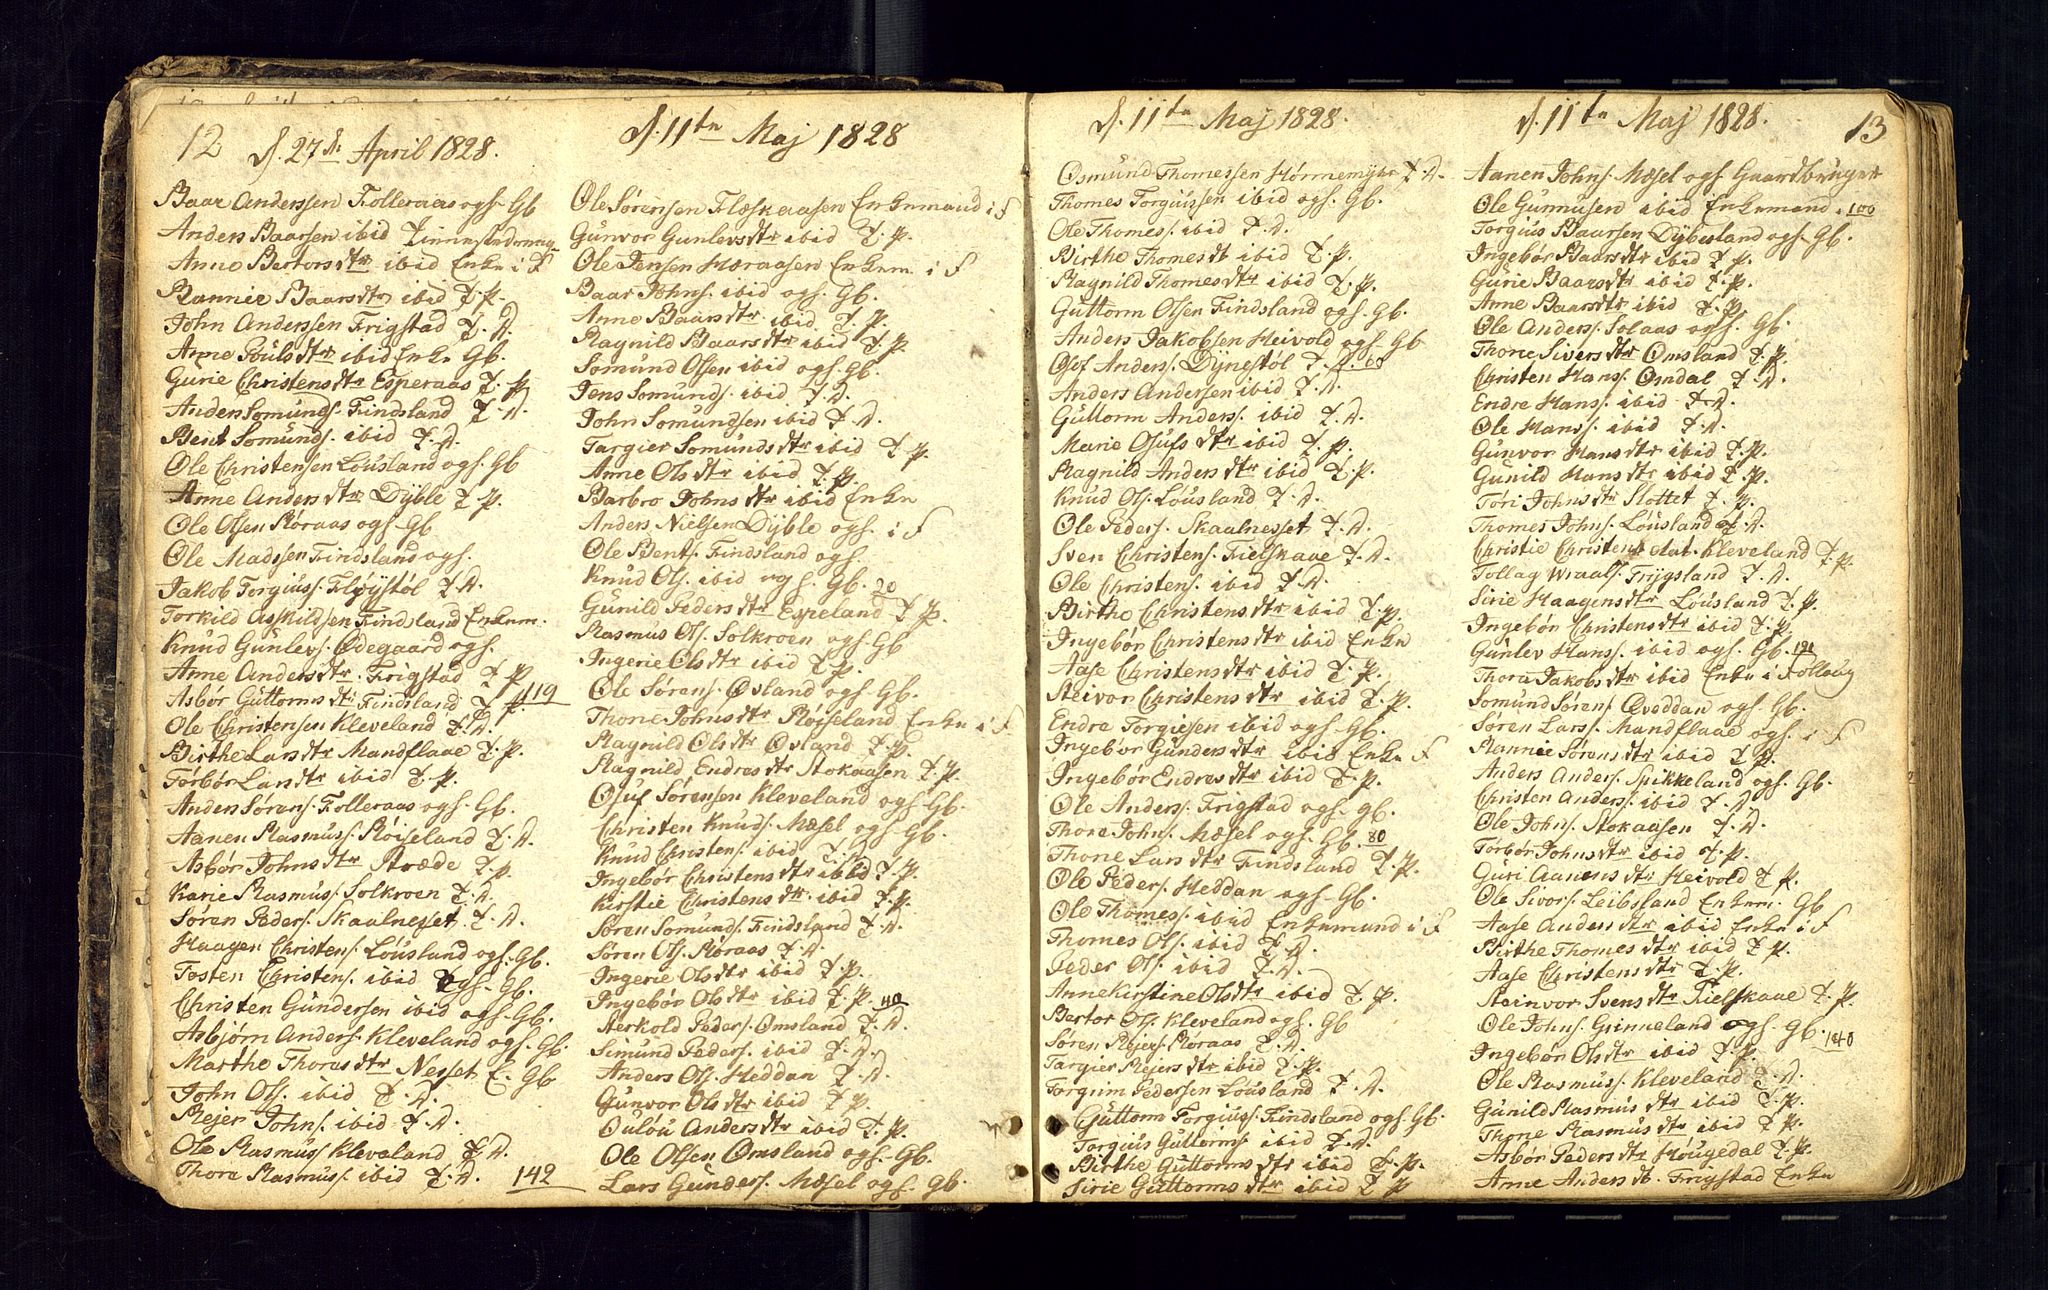 12 d. 27de April 1828.
Baar Anderssen Folleraas ogh. Gb
Anders Baarssen ibid
Anne Bertorsdtr ibid Enke i F
Rannie Baarsdtr ibid T. P.
John Anderssen Frigstad T. D.
Anne Povlsdtr ibid Enke Gb.
Gurie Christensdtr Esperaas T. P.
Anders Somunds. Findsland T. D.
Bent Somunds. ibid T. D.
Ole Christensen Lousland ogh. Gb
Anne Andersdtr Dyble T. P.
Ole Olsen Røraas ogh. Gb
Ole Madssen Findsland ogh.
Jakob Torgiuss. Fløystøl T. D.
Torkild Askildsen Findsland Enkem.
Knud Gunlevs. Ødegaard ogh.
Anne Andersdtr. Frigstad T. P.
Asbør Guttormsdtr Findsland T. P. 119
Ole Christensen Kleveland T. D.
Birthe Larsdtr Mandflaae T. P.
Torbør Larsdtr ibid T. P.
Anders Sørens. Folleraas ogh. Gb.
Aanen Rasmuss. Røiseland T. D.
Asbør Johnsdtr Stræde T. P.
Karie Rasmuss. Solkroen T. D.
Søren Peders. Skaalnesset T. D.
Haagen Christens. Lousland ogh. Gb.
Tosten Christens. ibid ogh. Gb.
Christen Gundersen ibid ogh. Gb.
Asbjørn Anders. Kleveland ogh. Gb.
Marthe Thorasdtr Nesset E. Gb
John Ols. ibid T. D.
Rejer Johns. ibid T. D.
Ole Rasmuss Kleveland T. D.
Thora Rasmuss. ibid T. D. 142
d. 11te Maj 1828
Ole Sørensen Flæskaasen Enkemand i F
Gunvor Gunlevsdtr ibid T. P.
Ole Jensen Haraasen Enkem i F
Baar Johns. ibid ogh. Gb.
Anne Baarsdtr. ibid T. P.
Ragnild Baarsdtr ibid T. P.
Somund Olsen ibid ogh. Gb.
Jens Somunds. ibid T. D.
John Somundsen ibid T. D.
Targier Somundsdtr ibid T. P.
Anne Olsdtr ibid T. P.
Barbro Johnsdtr ibid Enke
Anders Nielsen Dyble ogh. i F
Ole Bents. Findsland ogh
Knud Ols. ibid ogh. Gb. 20
Gunild Pedersdtr Espeland T. P.
Rasmus Ols. Solkroen ogh. Gb
Ingerie Olsdtr ibid T. P.
Ole Sørens. Øvland ogh. Gb.
Thone Johnsdtr Røiseland Enke i F
Ragnild Olsdtr Øvland T. P.
Ragnild Endresdtr Stokaasen T. P.
Osuf Sørensen Kleveland ogh. Gb.
Christen Knuds. Mæsel ogh. Gb.
Knud Christens. ibid T. D.
Ingebør Christensdtr ibid T. P.
Kirstie Christensdtr. ibid T. P.
Søren Somunds. Findsland T. D.
Søren Ols. Røraas T. D.
Ingerie Olsdtr ibid T. P.
Ingebør Olsdtr ibid T. P. 40
Sterkold Peders. Omsland T. D.
Simund Peders. ibid T. D.
Anders Ols. Heddan T. D.
Gunvor Olsdtr ibid T. P.
Oulou Andersdtr ibid T. P.
Ole Olsen Omsland ogh. Gb.
Lars Gunders. Mæsel ogh. Gb.
d. 11te Maj 1828.
Osmund Thomessen Hørremyhr T. D.
Thomes Torguissen ibid ogh. Gb.
Ole Thomes. ibid T. D.
Birthe Thomesdt ibid T. P.
Ragnild Thomesdtr ibid T. P.
Guttorm Olsen Findsland ogh. Gb.
Anders Jakobsen Heivold ogh. Gb
Osof Anders. Dynestøl T. D. 60
Anders Andersen ibid T. D.
Guttorm Anders. ibid T. D.
Marie Osufsdtr ibid T. P.
Ragnild Andersdtr ibid T. P.
Knud Ols. Lousland T. D.
Ole Peders. Skaalnesset T. D.
Sven Christens. Fielskaae T. D.
Ole Christens. ibid T. D.
Birthe Christensdtr ibid T. P.
Ingebør Christensdtr ibid Enke
Aase Christensdtr ibid T. P.
Steivor Christensdtr ibid T. P.
Endre Torgiesen ibid ogh. Gb.
Ingebør Gundersdtr ibid Enke F
Ingebør Endresdtr ibid T. P.
Ole Anders. Frigstad ogh. Gb.
Thore Johns. Mæsel ogh. Gb. 80
Thone Larsdtr Findsland T. P.
Ole Peders. Heddan ogh. Gb.
Ole Thomes. ibid Enkemand i F
Thomes Ols. ibid T. D.
Peder Ols. ibid T. D.
Anne Kirstine Olsdtr ibid T. P.
Bertor Ols. Kleveland ogh. Gb
Søren Rejers. Røraas T. D.
Targier Rejersdtr ibid T. P.
Torgrim Pedersen Lousland T. D.
Guttorm Torgiuss. Findsland ogh. Gb.
Torgius Guttorms. ibid T. D.
Birthe Guttormsdtr ibid T. P.
Sirie Guttormsdtr ibid T. P
d. 11te Maj 1828. 13
Aanen Johns. Mæsel ogh Gaardbruger
Ole Gunnusen ibid Enkemand. 100
Torgius Baarsen Dybesland ogh. Gb.
Ingebør Baarsdtr ibid T. P.
Gurie Baarsdtr ibid T. P.
Anne Baarsdtr ibid T. P.
Ole Anders. Solaas ogh. Gb.
Thone Siversdtr Omsland T. P.
Christen Hans. Omdal T. D.
Endre Hans. ibid T. D.
Ole Hans. ibid T. D.
Gunvor Hansdtr ibid T. P.
Gunild Hansdtr ibid T. P.
Tøri Johnsdtr Slottet T. P.
Thomes Johns. Lousland T. D.
Christie Christens dat. Kleveland T. P.
Tollag Wraals. Frygsland T. D.
Sirie Haagensdtr Lousland T. P.
Ingebør Christensdtr ibid T. P.
Gunlev Hans. ibid ogh. Gb. 120
Thora Jakobsdtr ibid Enke i Follaug
Somund Sørens Qvoddan ogh. Gb.
Søren Lars. Mandflaae ogh. i F
Rannie Sørensdtr ibid T. P.
Anders Anders. Spikkeland ogh. Gb.
Christen Anders. ibid T. D.
Ole Johns. Stokaasen T. D.
Torbør Johnsdtr ibid T. P.
Guri Aanensdtr Heivold T. P.
Ole Sivers. Leibsland Enkem. Gb
Aase Andersdtr ibid Enke i F
Birthe Thomesdtr ibid T. P.
Aase Christensdtr T. P.
Steinvor Svensdtr Fielskaae T. P.
Ole Johns. Grinneland ogh. Gb. 140
Ingebør Olsdtr ibid T. P.
Ole Rasmuss. Kleveland T. D.
Gunild Rasmusdtr ibid T. P.
Thone Rasmusdtr ibid T. P.
Asbør Pedersdtr Hougedal T. P.
Anne Andersdt. Frigstad Enke